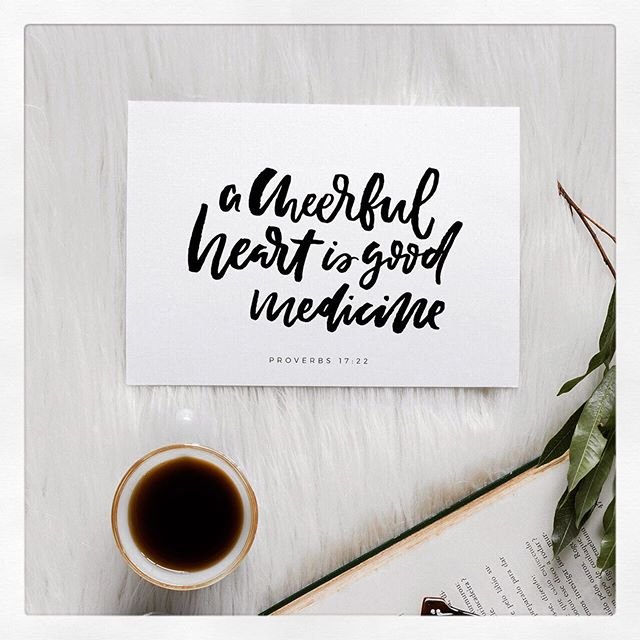 a cheerful
heart is good
medicine
PROVERBS 17:22